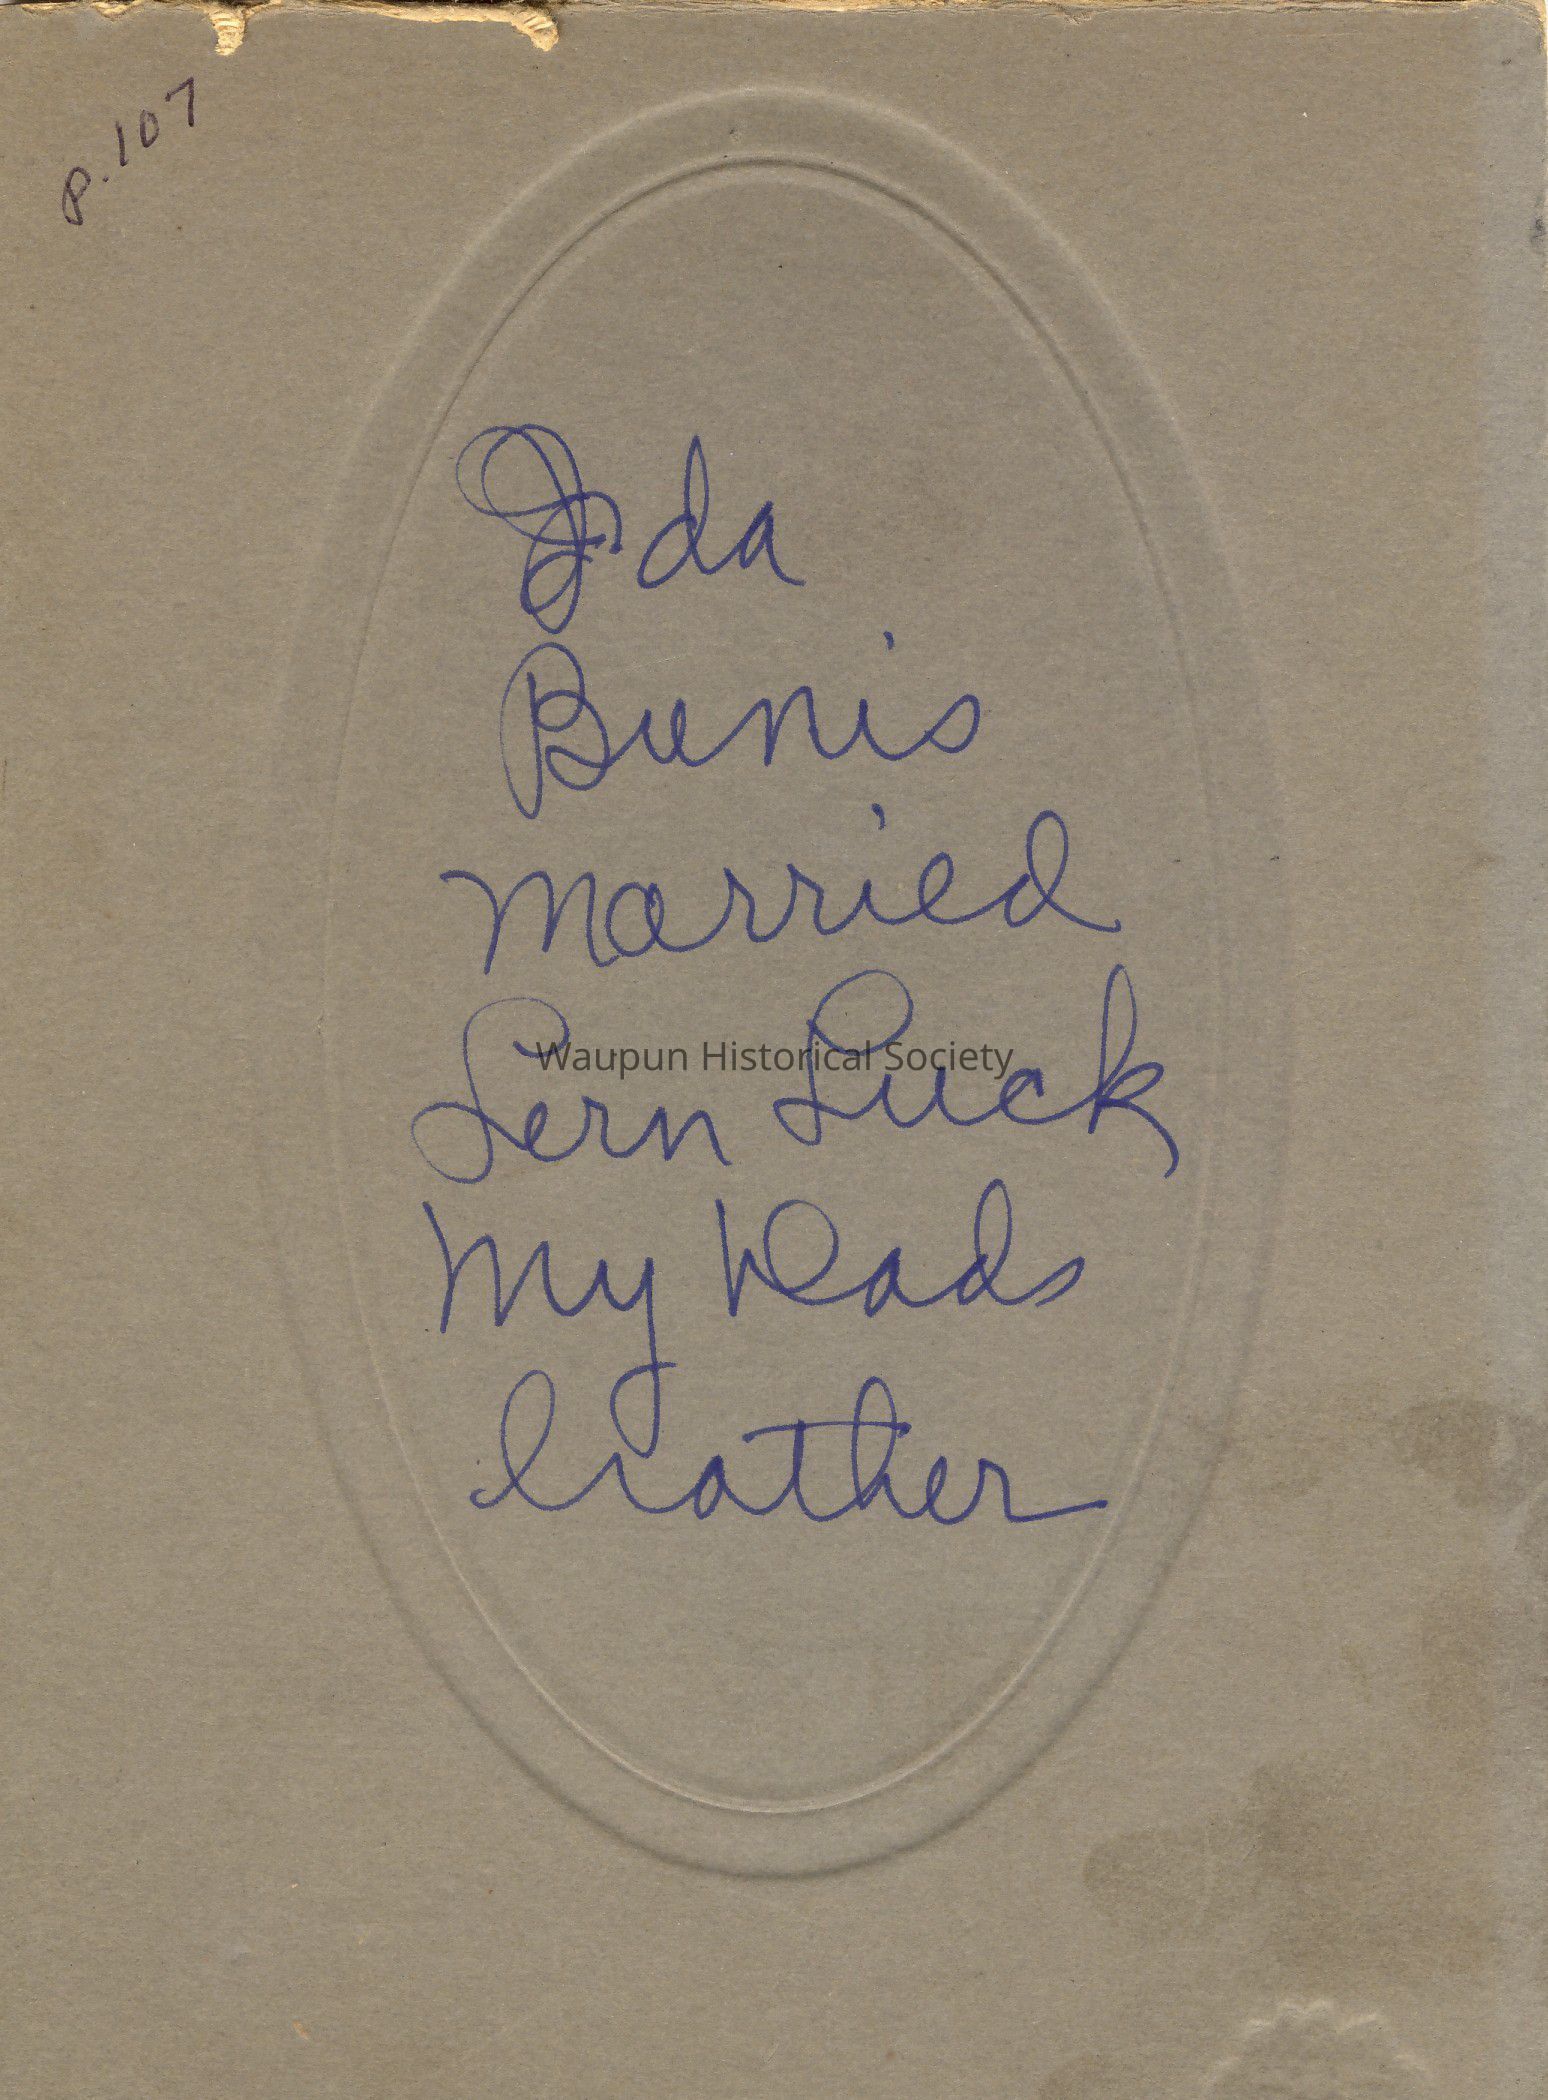 P. 107
Ida
Bunis
Married
Lern Luck
My Dads
brother
Waupun Historical Society